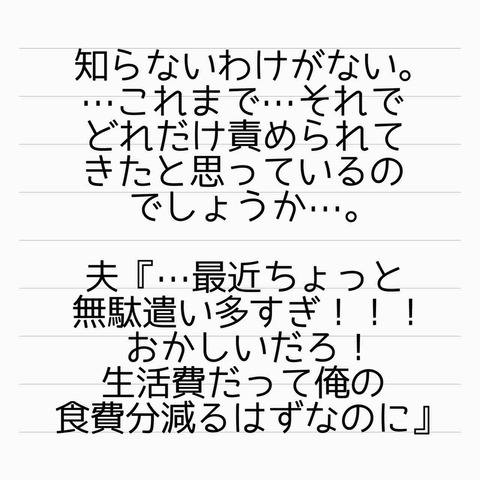 知らないわけがない。
…これまで…それで
どれだけ責められて
きたと思っているの
でしょうか…。
夫『…最近ちょっと
無駄遣い多すぎ！！！
おかしいだろ！
生活費だって俺の
食費分減るはずなのに』